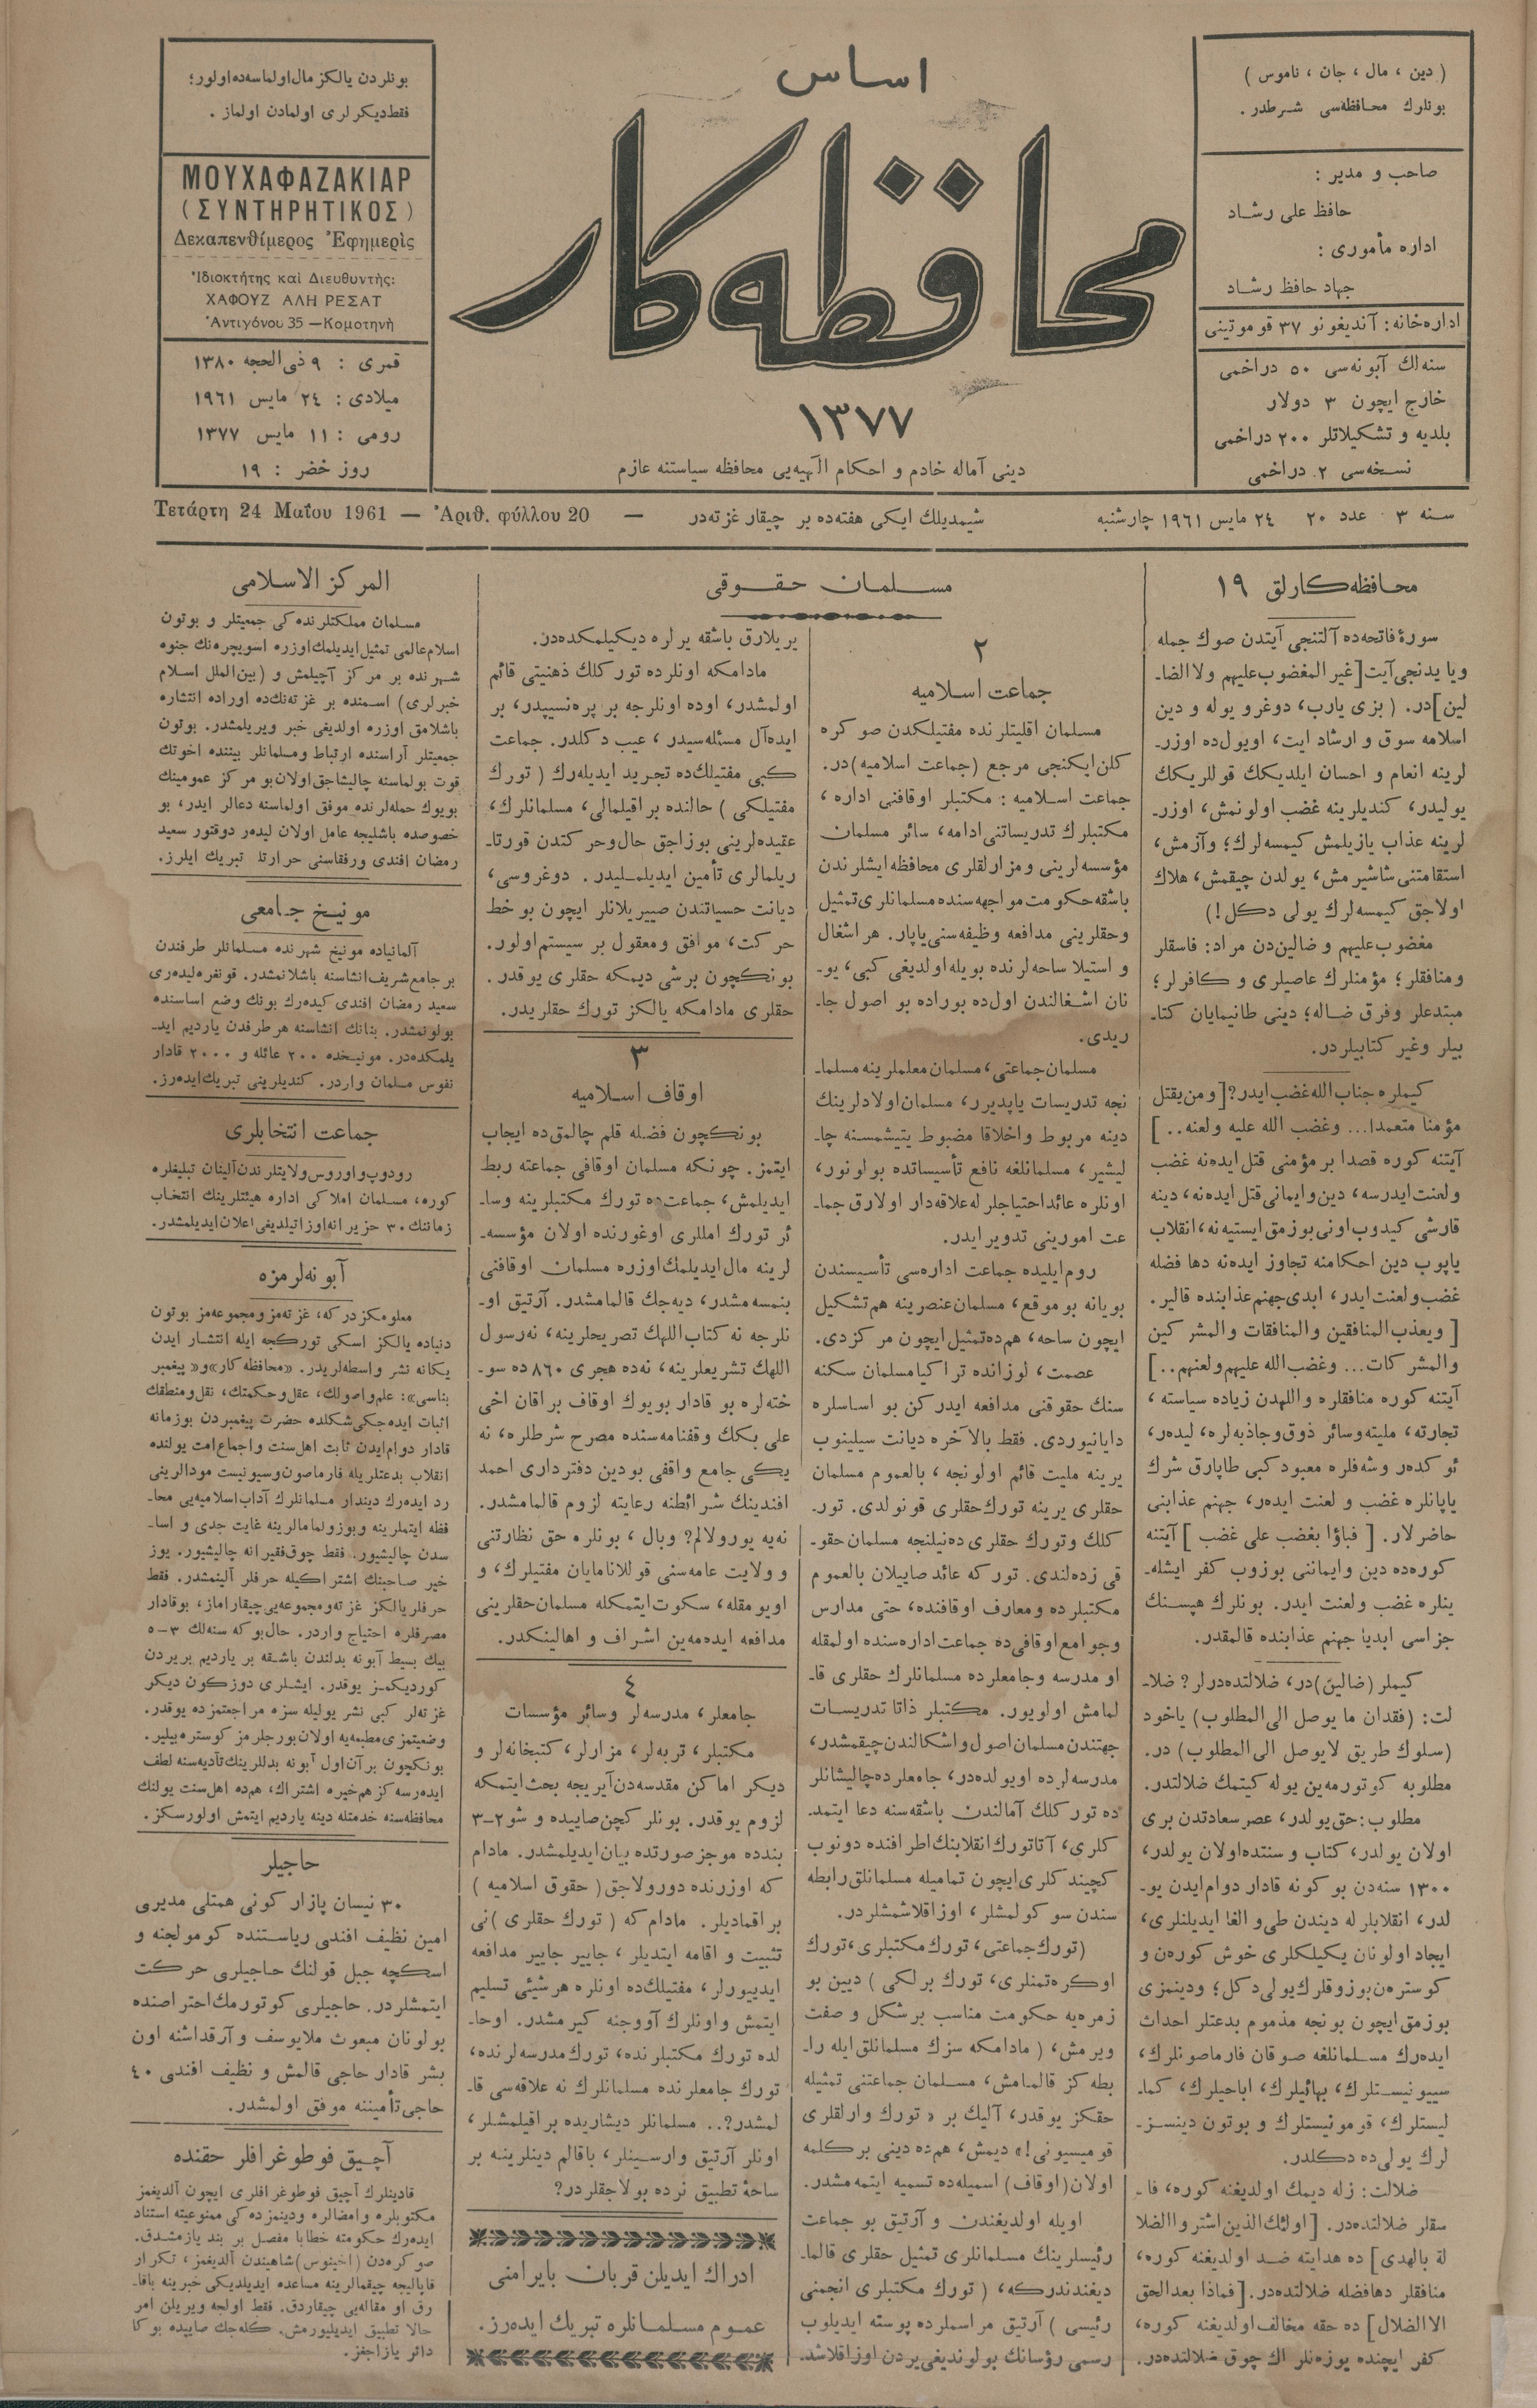 ( دين ، مال ، جان ، ناموس )
بونلرك محافظه‌سى شرطدر .
صاحب و مدير :
حافظ على رشاد
اداره مأمورى :
جهاد حافظ رشاد
اداره‌خانه : آنديغونو ٣٧ قوموتينى
سنه‌لك آبونه‌سى ٥٠ دراخمى
خارج ايچون ٣ دولار
بلديه و تشكيلاتلر ٢٠٠ دراخمى
نسخه‌سى ٢ دراخمى
اساس
محافظه‌كار
١٣٧٧
دينى آماله خادم و احكام الٓهيه‌يى محافظه سياستنه عازم
بونلردن يالكز مال اولماسه‌ده اولور ؛
فقط ديكرلرى اولمادن اولماز .
ΜΟΥΧΑΦΑΖΑΚΙΑΡ
(ΣΥΝΤΗΡΗΤΙΚΟΣ)
Δεκαπενθίμερος Ἐφημερὶς
Ἰδιοκτήτης καὶ Διευθυντὴς:
ΧΑΦΟΥΖ ΑΛΗ ΡΕΣΑΤ
Ἀντιγόνου 35 — Κομοτηνὴ
قمرى : ٩ ذى الحجه ١٣٨٠
ميلادى : ٢٤ مايس ١٩٦١
رومى : ١١ مايس ١٣٧٧
روز خضر : ١٩
سنه ٣ عدد ٢٠ ٢٤ مايس ١٩٦١ چارشنبه
شيمديلك ايكى هفته‌ده بر چيقار غزته‌در
— Τετάρτη 24 Μαΐου 1961 — Ἀριθ. φύλλου 20
محافظه‌كارلق ١٩
سورۀ فاتحه‌ده آلتنجى آيتدن صوك جمله
ويا يدنجى آيت [ غير المغضوب عليهم ولا الضا-
لين ] در. ( بزى يارب ، دوغرو يوله و دين
اسلامه سوق و ارشاد ايت ، اويول‌ده اوزر-
لرينه انعام و احسان ايلديكك قوللريكك
يوليدر ، كنديلرينه غضب اولونمش ، اوزر-
لرينه عذاب يازيلمش كيمسه‌لرك ؛ وآزمش ،
استقامتنى شاشيرمش ، يولدن چيقمش ، هلاك
اولاجق كيمسه‌لرك يولى دكل ! )
مغضوب عليهم و ضالين‌دن مراد : فاسقلر
ومنافقلر ؛ مؤمنلرك عاصيلرى و كافرلر ؛
مبتدعلر وفرق ضاله ؛ دينى طانيمايان كتا-
بيلر وغير كتابيلردر.
كيملره جناب الله غضب ايدر ؟ [ ومن يقتل
مؤمنا متعمدا... وغضب الله عليه ولعنه.. ]
آيتنه كوره قصدا بر مؤمنى قتل ايده‌نه غضب
ولعنت ايدرسه ، دين وايمانى قتل ايده‌نه ، دينه
قارشى كيدوب اونى بوزمق ايستيه‌نه ، انقلاب
ياپوب دين احكامنه تجاوز ايده‌نه دها فضله
غضب ولعنت ايدر ، ابدى جهنم عذابنده قالير .
[ ويعذب المنافقين والمنافقات والمشركين
والمشركات... وغضب الله عليهم ولعنهم.. ]
آيتنه كوره منافقلره واللهدن زياده سياسته ،
تجارته ، مليته وسائر ذوق وجاذبه‌لره ، ليدر ،
ئو كده‌ر وشه‌فلره معبود كبى طاپارق شرك
ياپانلره غضب و لعنت ايده‌ر ، جهنم عذابنى
حاضرلار. [ فباؤا بغضب على غضب ] آيتنه
كوره‌ده دين وايماننى بوزوب كفر ايشله-
ينلره غضب ولعنت ايدر. بونلرك هپسنك
جزاسى ابديا جهنم عذابنده قالمقدر.
كيملر ( ضالين ) در ، ضلالتده‌درلر ؟ ضلا-
لت : ( فقدان ما يوصل الى المطلوب ) ياخود
( سلوك طريق لا يوصل الى المطلوب ) در.
مطلوبه كوتورمه‌ين يوله كيتمك ضلالتدر.
مطلوب : حق يولدر ، عصر سعادتدن برى
اولان يولدر ، كتاب و سنتده اولان يولدر ،
١٣٠٠ سنه‌دن بو كونه قادار دوام ايدن يو-
لدر ، انقلابلرله ديندن طى و الغا ايديلنلرى ،
ايجاد اولونان يكيلكلرى خوش كوره‌ن و
كوستره‌ن بوزوقلرك يولى دكل ؛ ودينمزى
بوزمق ايچون بونجه مذموم بدعتلر احداث
ايده‌رك مسلمانلغه صوقان فارماصونلرك ،
سييونيستلرك ، بهائيلرك ، اباحيلرك ، كما-
ليستلرك ، قومونيستلرك و بوتون دينسز-
لرك يولى‌ده دكلدر.
ضلالت : زله ديمك اولديغنه كوره ، فا-
سقلر ضلالتده‌در. [ اولئك الذين اشتروا الضلا
لة بالهدى ] ده هدايته ضد اولديغنه كوره ،
منافقلر دها فضله ضلالتده‌در. [ فماذا بعد الحق
الا الضلال ] ده حقه مخالف اولديغنه كوره ،
كفر ايچنده يوزه‌نلر اك چوق ضلالتده‌در.
مسلمان حقوقى
٢
جماعت اسلاميه
مسلمان اقليتلرنده مفتيلكدن صوكره
كلن ايكنجى مرجع ( جماعت اسلاميه ) در.
جماعت اسلاميه : مكتبلر اوقافنى اداره ،
مكتبلرك تدريساتنى ادامه ، سائر مسلمان
مؤسسه‌لرينى ومزارلقلرى محافظه ايشلرندن
باشقه حكومت مواجهه‌سنده مسلمانلرى تمثيل
وحقلرينى مدافعه وظيفه‌سنى ياپار. هر اشغال
و استيلا ساحه‌لرنده بويله اولديغى كبى ، يو-
نان اشغالندن اول‌ده بوراده بو اصول جا-
ريدى.
مسلمان جماعتى ، مسلمان معلملرينه مسلما-
نجه تدريسات ياپديرر ، مسلمان اولادلرينك
دينه مربوط واخلاقا مضبوط يتيشمسنه چا-
ليشير ، مسلمانلغه نافع تأسيساتده بولونور ،
اونلره عائد احتياجلرله علاقه‌دار اولارق جما-
عت امورينى تدوير ايدر.
روم ايليده جماعت اداره‌سى تأسيسندن
بويانه بو موقع ، مسلمان عنصرينه هم تشكيل
ايچون ساحه ، هم‌ده تمثيل ايچون مركزدى.
عصمت ، لوزانده تراكيا مسلمان سكنه
سنك حقوقنى مدافعه ايدركن بو اساسلره
دايانيوردى. فقط بالآخره ديانت سيلينوب
يرينه مليت قائم اولونجه ، بالعموم مسلمان
حقلرى يرينه تورك حقلرى قونولدى. تور-
كلك وتورك حقلرى ده‌نيلنجه مسلمان حقو-
قى زده‌لندى. توركه عائد صاييلان بالعموم
مكتبلرده ومعارف اوقافنده ، حتى مدارس
وجوامع اوقافى‌ده جماعت اداره‌سنده اولمقله
او مدرسه وجامعلرده مسلمانلرك حقلرى قا-
لمامش اولويور. مكتبلر ذاتا تدريسات
جهتندن مسلمان اصول و اشكالندن چيقمشدر ،
مدرسه‌لرده اويولده‌در ، جامعلرده چاليشانلر
ده توركلك آمالندن باشقه‌سنه دعا ايتمد-
كلرى ، آتاتورك انقلابنك اطرافنده دونوب
كچيندكلرى ايچون تماميله مسلمانلق رابطه
سندن سوكولمشلر ، اوزاقلاشمشلردر.
( تورك جماعتى ، تورك مكتبلرى ، تورك
اوكره‌تمنلرى ، تورك برلكى ) ديين بو
زمره‌يه حكومت مناسب بر شكل و صفت
ويرمش ، ( مادامكه سزك مسلمانلق ايله را-
بطه كز قالمامش ، مسلمان جماعتنى تمثيله
حقكز يوقدر ، آليك بر « تورك وارلقلرى
قوميسيونى ! » ديمش ، هم‌ده دينى بر كلمه
اولان ( اوقاف ) اسميله‌ده تسميه ايتمه‌مشدر.
اويله اولديغندن و آرتيق بو جماعت
رئيسلرينك مسلمانلرى تمثيل حقلرى قالما-
ديغندندركه ، ( تورك مكتبلرى انجمنى
رئيسى ) آرتيق مراسملرده پوسته ايديلوب
رسمى رؤسانك بولونديغى يردن اوزاقلاشد-
يريلارق باشقه يرلره ديكيلمكده‌در.
مادامكه اونلرده توركلك ذهنيتى قائم
اولمشدر ، اوده اونلرجه بر پره‌نسيپدر ، بر
ايده‌آل مسئله‌سيدر ، عيب دكلدر. جماعت
كبى مفتيلك‌ده تجريد ايديله‌رك ( تورك
مفتيلكى ) حالنده براقيلمالى ، مسلمانلرك ،
عقيده‌لرينى بوزاجق حال وحركتدن قورتا-
ريلمالرى تأمين ايديلمليدر. دوغروسى ،
ديانت حسياتندن صييريلانلر ايچون بو خط
حركت ، موافق ومعقول بر سيستم اولور.
بونكچون برشى ديمكه حقلرى يوقدر.
حقلرى مادامكه يالكز تورك حقلريدر.
٣
اوقاف اسلاميه
بونكچون فضله قلم چالمق‌ده ايجاب
ايتمز. چونكه مسلمان اوقافى جماعته ربط
ايديلمش ، جماعت‌ده تورك مكتبلرينه وسا-
ئر تورك امللرى اوغورنده اولان مؤسسه-
لرينه مال ايديلمك اوزره مسلمان اوقافنى
بنمسه‌مشدر ، ديه‌جك قالمامشدر. آرتيق او-
نلرجه نه كتاب اللهك تصريحلرينه ، نه‌رسول
اللهك تشريعلرينه ، نه‌ده هجرى ٨٦٠ ده سو-
خته‌لره بو قادار بويوك اوقاف براقان اخى
على بكك وقفنامه‌سنده مصرح شرطلره ، نه
يكى جامع واقفى بودين دفتردارى احمد
افندينك شرائطنه رعايته لزوم قالمامشدر.
نه‌يه يورولالم ؟ وبال ، بونلره حق نظارتنى
و ولايت عامه‌سنى قوللانامايان مفتيلرك ، و
اويومقله ، سكوت ايتمكله مسلمان حقلرينى
مدافعه ايده‌مه‌ين اشراف و اهالينكدر.
٤
جامعلر ، مدرسه‌لر وسائر مؤسسات
مكتبلر ، تربه‌لر ، مزارلر ، كتبخانه‌لر و
ديكر اماكن مقدسه‌دن آيريجه بحث ايتمكه
لزوم يوقدر. بونلر كچن صاييده و شو ٢-٣
بندده موجز صورتده بيان ايديلمشدر. مادام
كه اوزرنده دورولاجق ( حقوق اسلاميه )
براقماديلر. مادام كه ( تورك حقلرى ) نى
تثبيت و اقامه ايتديلر ، جايير جايير مدافعه
ايدييورلر ، مفتيلك‌ده اونلره هرشيئى تسليم
ايتمش واونلرك آووجنه كيرمشدر. اوحا-
لده تورك مكتبلرنده ، تورك مدرسه‌لرنده ،
تورك جامعلرنده مسلمانلرك نه علاقه‌سى قا-
لمشدر ؟.. مسلمانلر ديشاريده براقيلمشلر ،
اونلر آرتيق وارسينلر ، باقالم دينلرينه بر
ساحۀ تطبيق نرده بولاجقلردر ؟
ادراك ايديلن قربان بايرامنى
عموم مسلمانلره تبريك ايده‌رز.
المركز الاسلامى
مسلمان مملكتلرنده كى جمعيتلر و بوتون
اسلام عالمى تمثيل ايديلمك اوزره اسويچره‌نك جنوه
شهرنده بر مركز آچيلمش و ( بين الملل اسلام
خبرلرى ) اسمنده بر غزته‌نك‌ده اوراده انتشاره
باشلامق اوزره اولديغى خبر ويريلمشدر. بوتون
جمعيتلر آراسنده ارتباط ومسلمانلر بيننده اخوتك
قوت بولماسنه چاليشاجق اولان بو مركز عمومينك
بويوك حمله‌لرنده موفق اولماسنه دعالر ايدر ، بو
خصوصده باشليجه عامل اولان ليده‌ر دوقتور سعيد
رمضان افندى ورفقاسنى حرارتله تبريك ايلرز.
مونيخ جامعى
آلمانياده مونيخ شهرنده مسلمانلر طرفندن
بر جامع شريف انشاسنه باشلانمشدر. قونفره‌ليده‌رى
سعيد رمضان افندى كيده‌رك بونك وضع اساسنده
بولونمشدر. بنانك انشاسنه هر طرفدن يارديم ايد-
يلمكده‌در. مونيخده ٢٠٠ عائله و ٢٠٠٠ قادار
نفوس مسلمان واردر. كنديلرينى تبريك ايده‌رز.
جماعت انتخابلرى
رودوپ واوروس ولايتلرندن آلينان تبليغلره
كوره ، مسلمان املاكى اداره هيئتلرينك انتخاب
زماننك ٣٠ حزيرانه اوزاتيلديغى اعلان ايديلمشدر.
آبونه‌لرمزه
معلومكزدركه ، غزته‌مز ومجموعه‌مز بوتون
دنياده يالكز اسكى توركجه ايله انتشار ايدن
يكانه نشر واسطه‌لريدر. « محافظه‌كار » و « پيغمبر
بناسى » : علم واصولك ، عقل وحكمتك ، نقل ومنطقك
اثبات ايده‌جكى شكلده حضرت پيغمبردن بوزمانه
قادار دوام ايدن ثابت اهل سنت واجماع امت يولنده
انقلاب بدعتلريله فارماصون وسيونيست مودالرينى
رد ايده‌رك ديندار مسلمانلرك آداب اسلاميه‌يى محا-
فظه ايتملرينه وبوزولمامالرينه غايت جدى و اسا-
سدن چاليشيور. فقط چوق فقيرانه چاليشيور. يوز
خير صاحبنك اشتراكيله حرفلر آلينمشدر. فقط
حرفلر يالكز غزته‌ومجموعه‌يى چيقاراماز ، بوقادار
مصرفلره احتياج واردر. حال بوكه سنه‌لك ٣-٥
بيك بسيط آبونه بدلندن باشقه بر يارديم بريردن
كورديكمز يوقدر. ايشلرى دوزكون ديكر
غزته‌لر كبى نشر يوليله سزه مراجعتمزده يوقدر.
وضعيتمزى مطبعه‌يه اولان بورجلرمز كوستره‌بيلير.
بونكچون بر آن اول آبونه بدللرينك تأديه‌سنه لطف
ايده‌رسه‌كز هم خيره اشتراك ، هم‌ده اهل سنت يولنك
محافظه‌سنه خدمتله دينه يارديم ايتمش اولورسكز.
حاجيلر
٣٠ نيسان پازار كونى همتلى مديرى
امين نظيف افندى رياستنده كومولجنه و
اسكچه جبل قولنك حاجيلرى حركت
ايتمشلردر. حاجيلرى كوتورمك احتراصنده
بولونان مبعوث ملايوسف و آرقداشنه اون
بشر قادار حاجى قالمش و نظيف افندى ٤٠
حاجى تأميننه موفق اولمشدر.
آچيق فوطوغرافلر حقنده
قادينلرك آچيق فوطوغرافلرى ايچون آلديغمز
مكتوبلره و امضالره ودينمزده كى ممنوعيته استناد
ايده‌رك حكومته خطابا مفصل بر بند يازمشدق.
صوكره‌دن ( اخينوس ) شاهيندن آلديغمز ، تكرار
قاپاليجه چيقمالرينه مساعده ايديلديكى خبرينه باقا-
رق او مقاله‌يى چيقاردق. فقط اولجه ويريلن امر
حالا تطبيق ايديليورمش. كله‌جك صاييده بوكا
دائر يازاجغز.